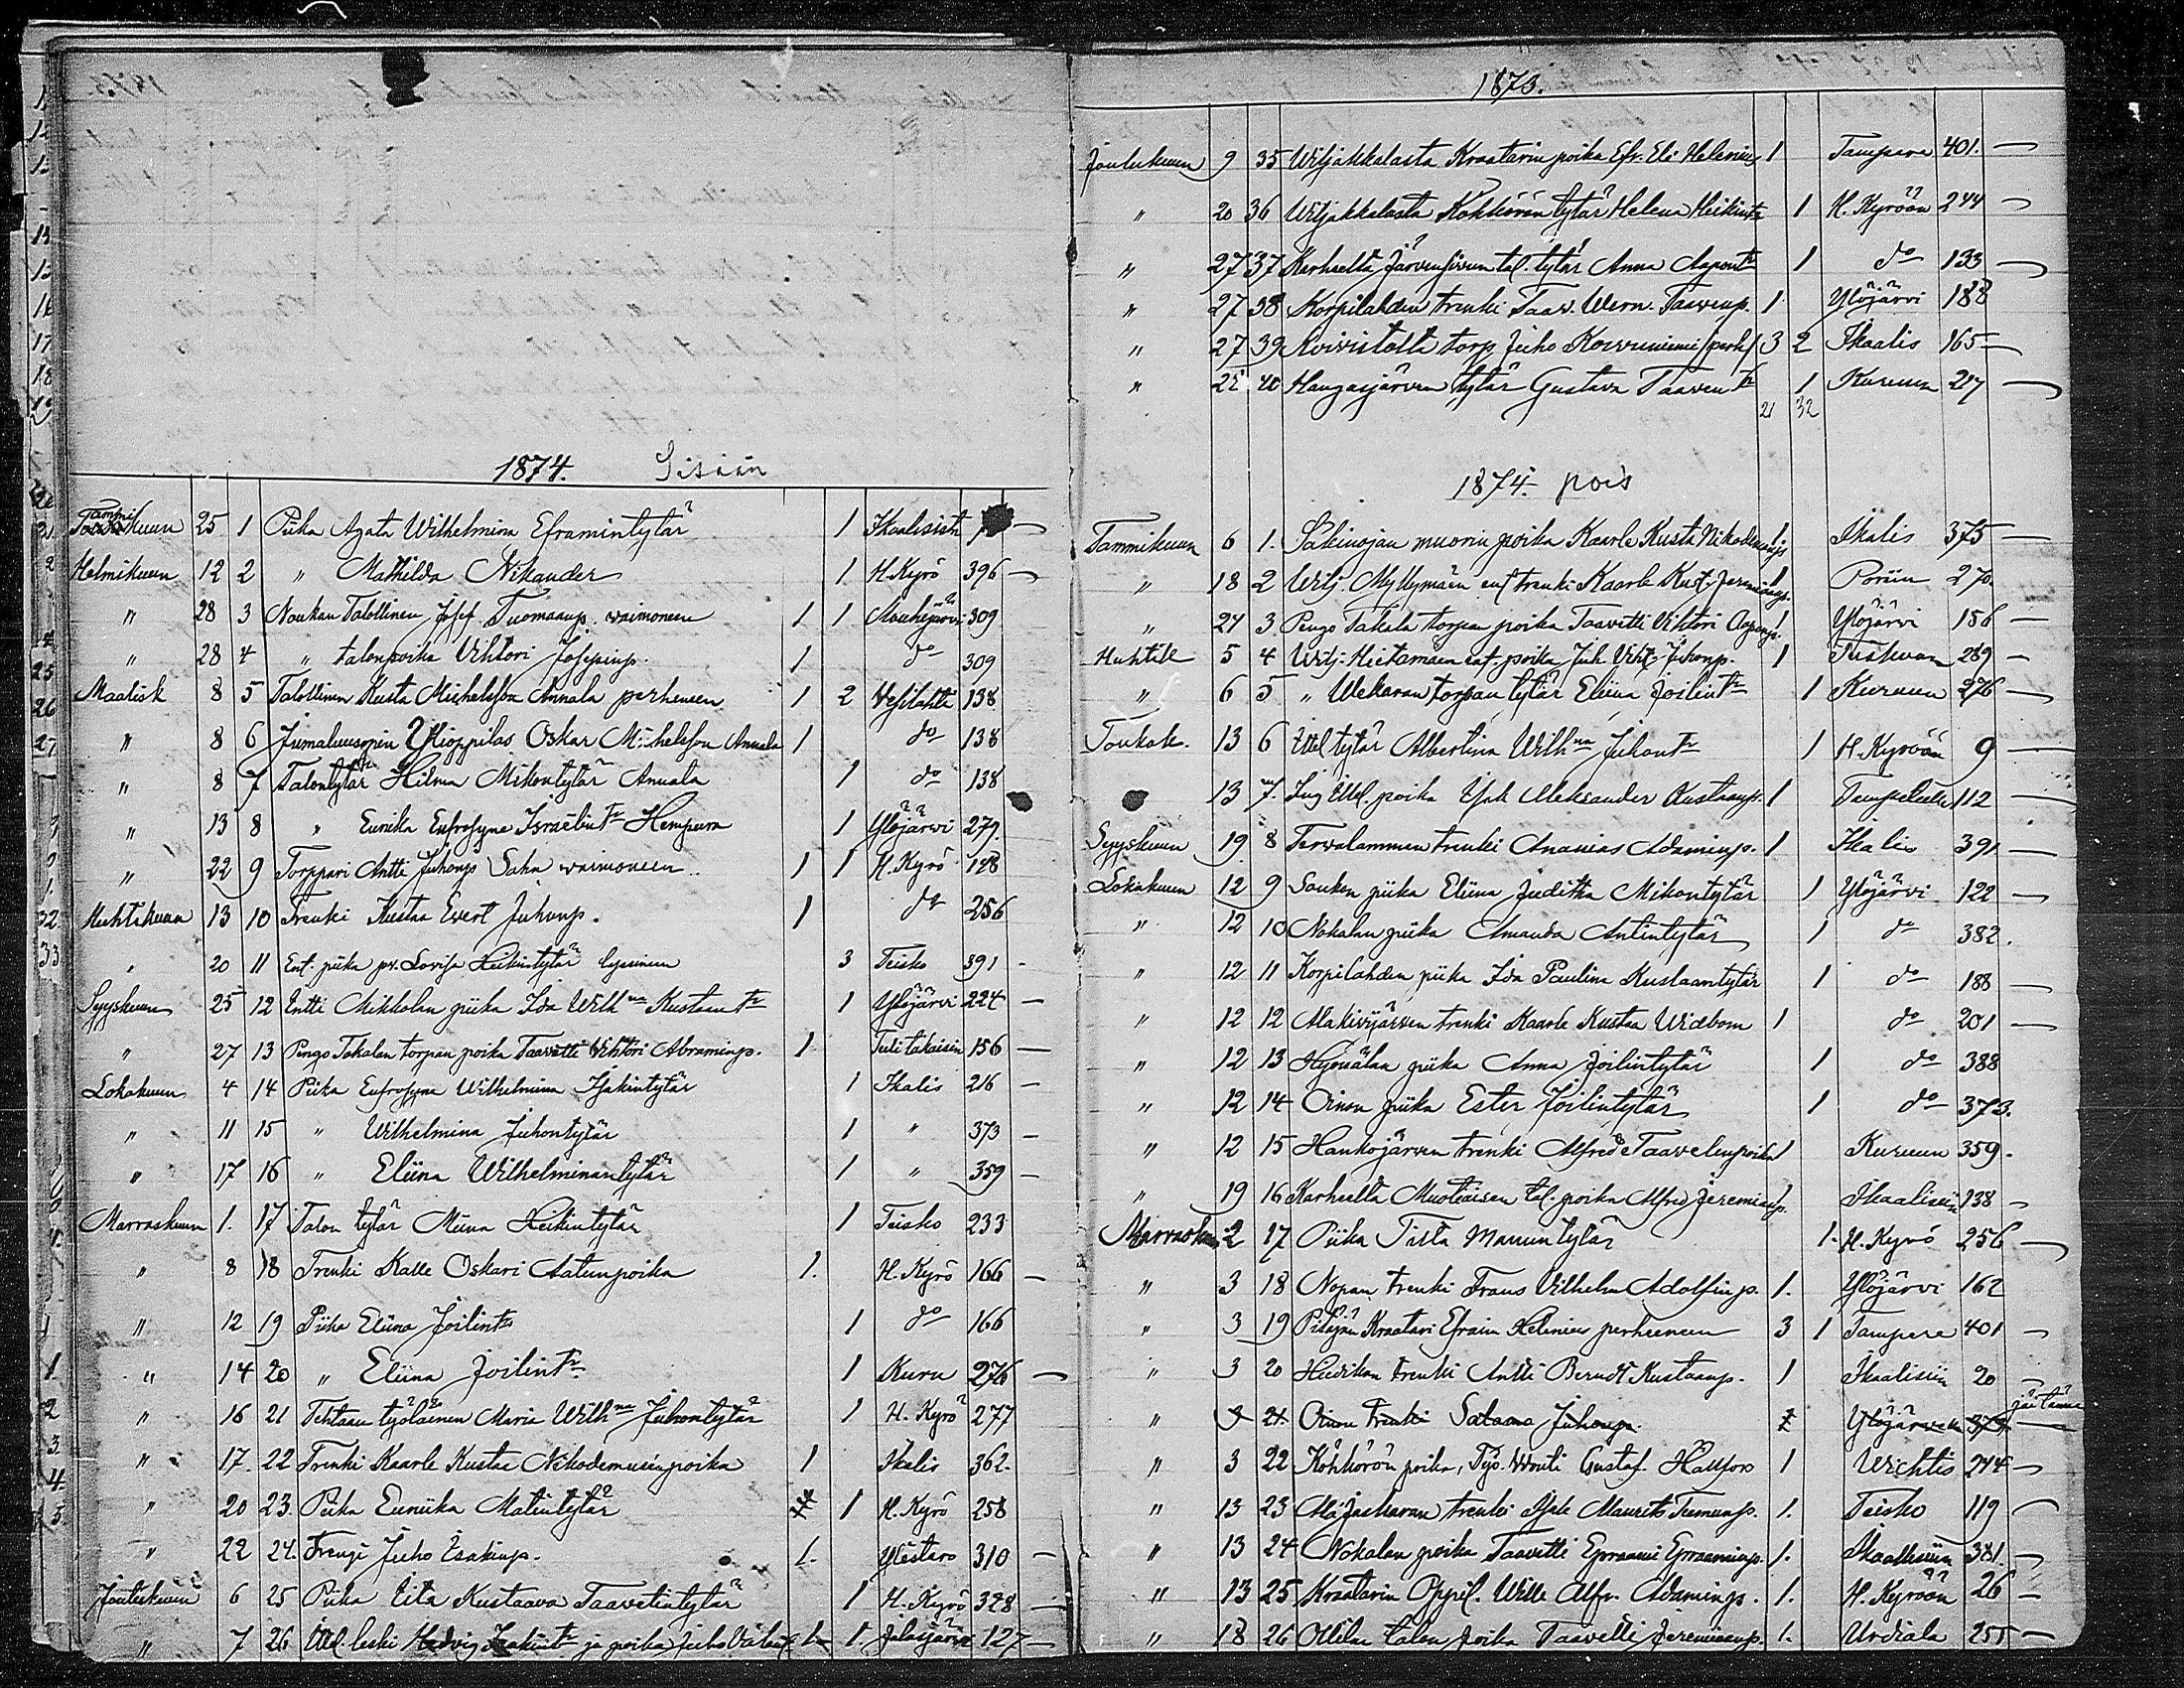 1874. Sisään
Tammikuun 25 1 Piika Agata Wilhelmina Eframintytär 1 Ikaalisista
Helmikuun 12 2 " Mathilda Nikander 1 H.Kyrö 396 —
" 28 3 Noukan Talollinen Josef Tuomaanp. waimoneen 1 1 Mouhijärvi 309
" 28 4 " talonpoika Vihtori Josefsinp. 1 do 309
Maalisk 8 5 Talollinen Kusta Michelsson Annala perheneen 1 2 Vesilahti 138
" 8 6 Jumaluusopin Ylioppilas Oskar Michelsson Annala 1 do 138
" 8 7 Talontytär Hilma Mikontytär Annala 1 do 138
" 13 8 " Eunika Eufrosyne Israelintr Hempura 1 Ylöjärwi 279.
" 22 9 Torppari Antti Juhonp Sahn waimoneen 1 1 H.Kyrö 128
Huhtikuun 13 10 Trenki Kustaa Evert Juhonp. 1 do 256
" 20 11 Ent. piika pr. Lovisa Heikintytär lapsineen 3 Teisko 391 -
Syyskuun 25 12 Entti Mikkolan piika Ida Wilhna Kustaantr 1 Ylöjärvi 224 —
" 27 13 Pengo Takalan torpan poika Taavetti Vihtori Abraminp. 1 Tuli takaisin 156 —
Lokakuun 4 14 Piika Eufrosyne Wilhelmina Isakintytär 1 Ikalis 216 —
" 11 15 " Wilhelmina Juhontytär 1 " 373 —
" 17 16 " Eliina Wilhelminantytär 1 " 359 —
Marraskuun 1. 17 Talon tytär Miina Heikintytär 1 Teisko 233
" 8 18 Trenki Kalle Oskari Aatunpoika 1. H.Kyrö 166 —
" 12 19 Piika Eliina Joilintr 1 do 166
" 14 20 " Eliina Joilintr 1 Kuru 276 —
" 16 21 Tehtaan työläinen Maria Wilhna Juhontytär 1 H. Kyrö 277
" 17. 22 Trenki Kaarle Kustaa Nikodemusenpoika 1 Ikalis 362.
" 20 23. Piika Euniika Matintytär 1 H.Kyrö 258
" 22 24. Trengi Juho Esakinp. 1. Ylistaro 310 —
Joulukuun 6 25 Piika Eita Kustaava Taavetintytär 1 H.Kyrö 328 —
" 7 26 Itsel. leski Hedvig Isakintr ja poika Juho 1 1 Jalasjärvi 127 —
1873.
Joulukuun 9 35 Wiljakkalasta Kraatarin poika Efr. Eli Helenius 1 Tampere 401. —
" 20 36 Wiljakkalasta Kohkörön tytär Helena Heikintr 1 H. Kyröön 244 —
" 27 37 Karheelta Järvensivun tal. tytär Anna Aapontr 1 do 133 —
" 27 38 Korpilahden trenki Taav. Wern. Taavenp. 1. Ylöjärvi 188
" 27 39 Koivistolta torp. Juho Koivuniemi /perh/ 3 2 Ikaalis 165 —
" 28 40 Haugasjärven tytär Gustava Taaventr 1 Kuruun 217 —
21 32
1874. pois
Tammikuun 6 1. Säkinojan muorin poika Kaarle Kusta Nikodemusp. 1 Ikalis 375 —
" 18 2 Wilj. Myllymäen ent trenki Kaarle Kust. Jeremiaanp. 1 Poriin 270.
" 24 3 Pengo Takala torpan poika Taavitti Vihtori Aapronp. 1 Ylöjärvi 156 —
Huhtik 5 4 Wilj. Hietamäen ent. poika Juh. Viht. Juhonp. 1 289 —
" 6 5 " Wekaran torpan tytär Eliina Joilintr 1 Kuruun 276 —
Toukok. 13 6 Itsel tytär Albertina Wilhna Juhontr 1 H. Kyröön 9 —
13 7. Itsel. poika Isak Aleksander Kustaanp. 1 112 —
Syyskuun 19 8 Terwalammen trenki Ananias Adaminp. 1 Ikalis 391 —
Lokakuun 12 9 Saukon piika Eliina Juditha Mikontytär 1 Ylöjärvi 122 —
" 12 10 Nokalan piika Amanda Antintytär 1 do 382.
" 12 11 Korpilahden piika Ida Paulina Kustaantytär 1 do 188 —
" 12 12 Alakivijärven trenki Kaarle Kustaa Widbom 1 do 201 —
" 12 13 Hyönälän piika Anna Joilintytär 1 do 388
" 12 14 Oinon piika Ester Joilintytär 1 do 373.
" 12 15 Hankojärven trenki Alfred Taavelinpoika 1 Kuruun 359.
" 19 16 Karheelta Muotiaisen tal. poika Alfred Jeremiaanp. 1 Ikaalisiin 138 —
Marraskuu 2 17 Piika Tista Manuntytär 1. H. Kyrö 256 —
" 3 18 Nopan trenki Frans Vilhelm Adolfinp. 1. Ylöjärvi 162
" 3 19 Pitäjän Kraatari Efraim Helenius perheeneen 3 1 Tampere 401 —
" 3 20 Hiedikan trenki Antti Berndt Kustaanp. 1 Ikaalisiin 20 —
" 3 21 Oinon Trenki Juhonp. 1 Ylöjärven 373 —
" 3 22 Köhkörön poika, Wouti Gustaf Hallfors 1 Wichtis 244 —
" 13 23 Alajaskaran trenki Isak Maurits Teemunp. 1. Teisko 119 —
" 13 24 Nokalan poika Taavetti Eprami Epraaminp. 1. Ikaalisiin 381. —
" 13 25 Kraatarin Oppil. Wille Alfr. Adaminp. 1. H. Kyröön 26 —
" 18 26 Ollilan talon poika Taavetti Jeremiaanp. 1. Urdiala 255 —